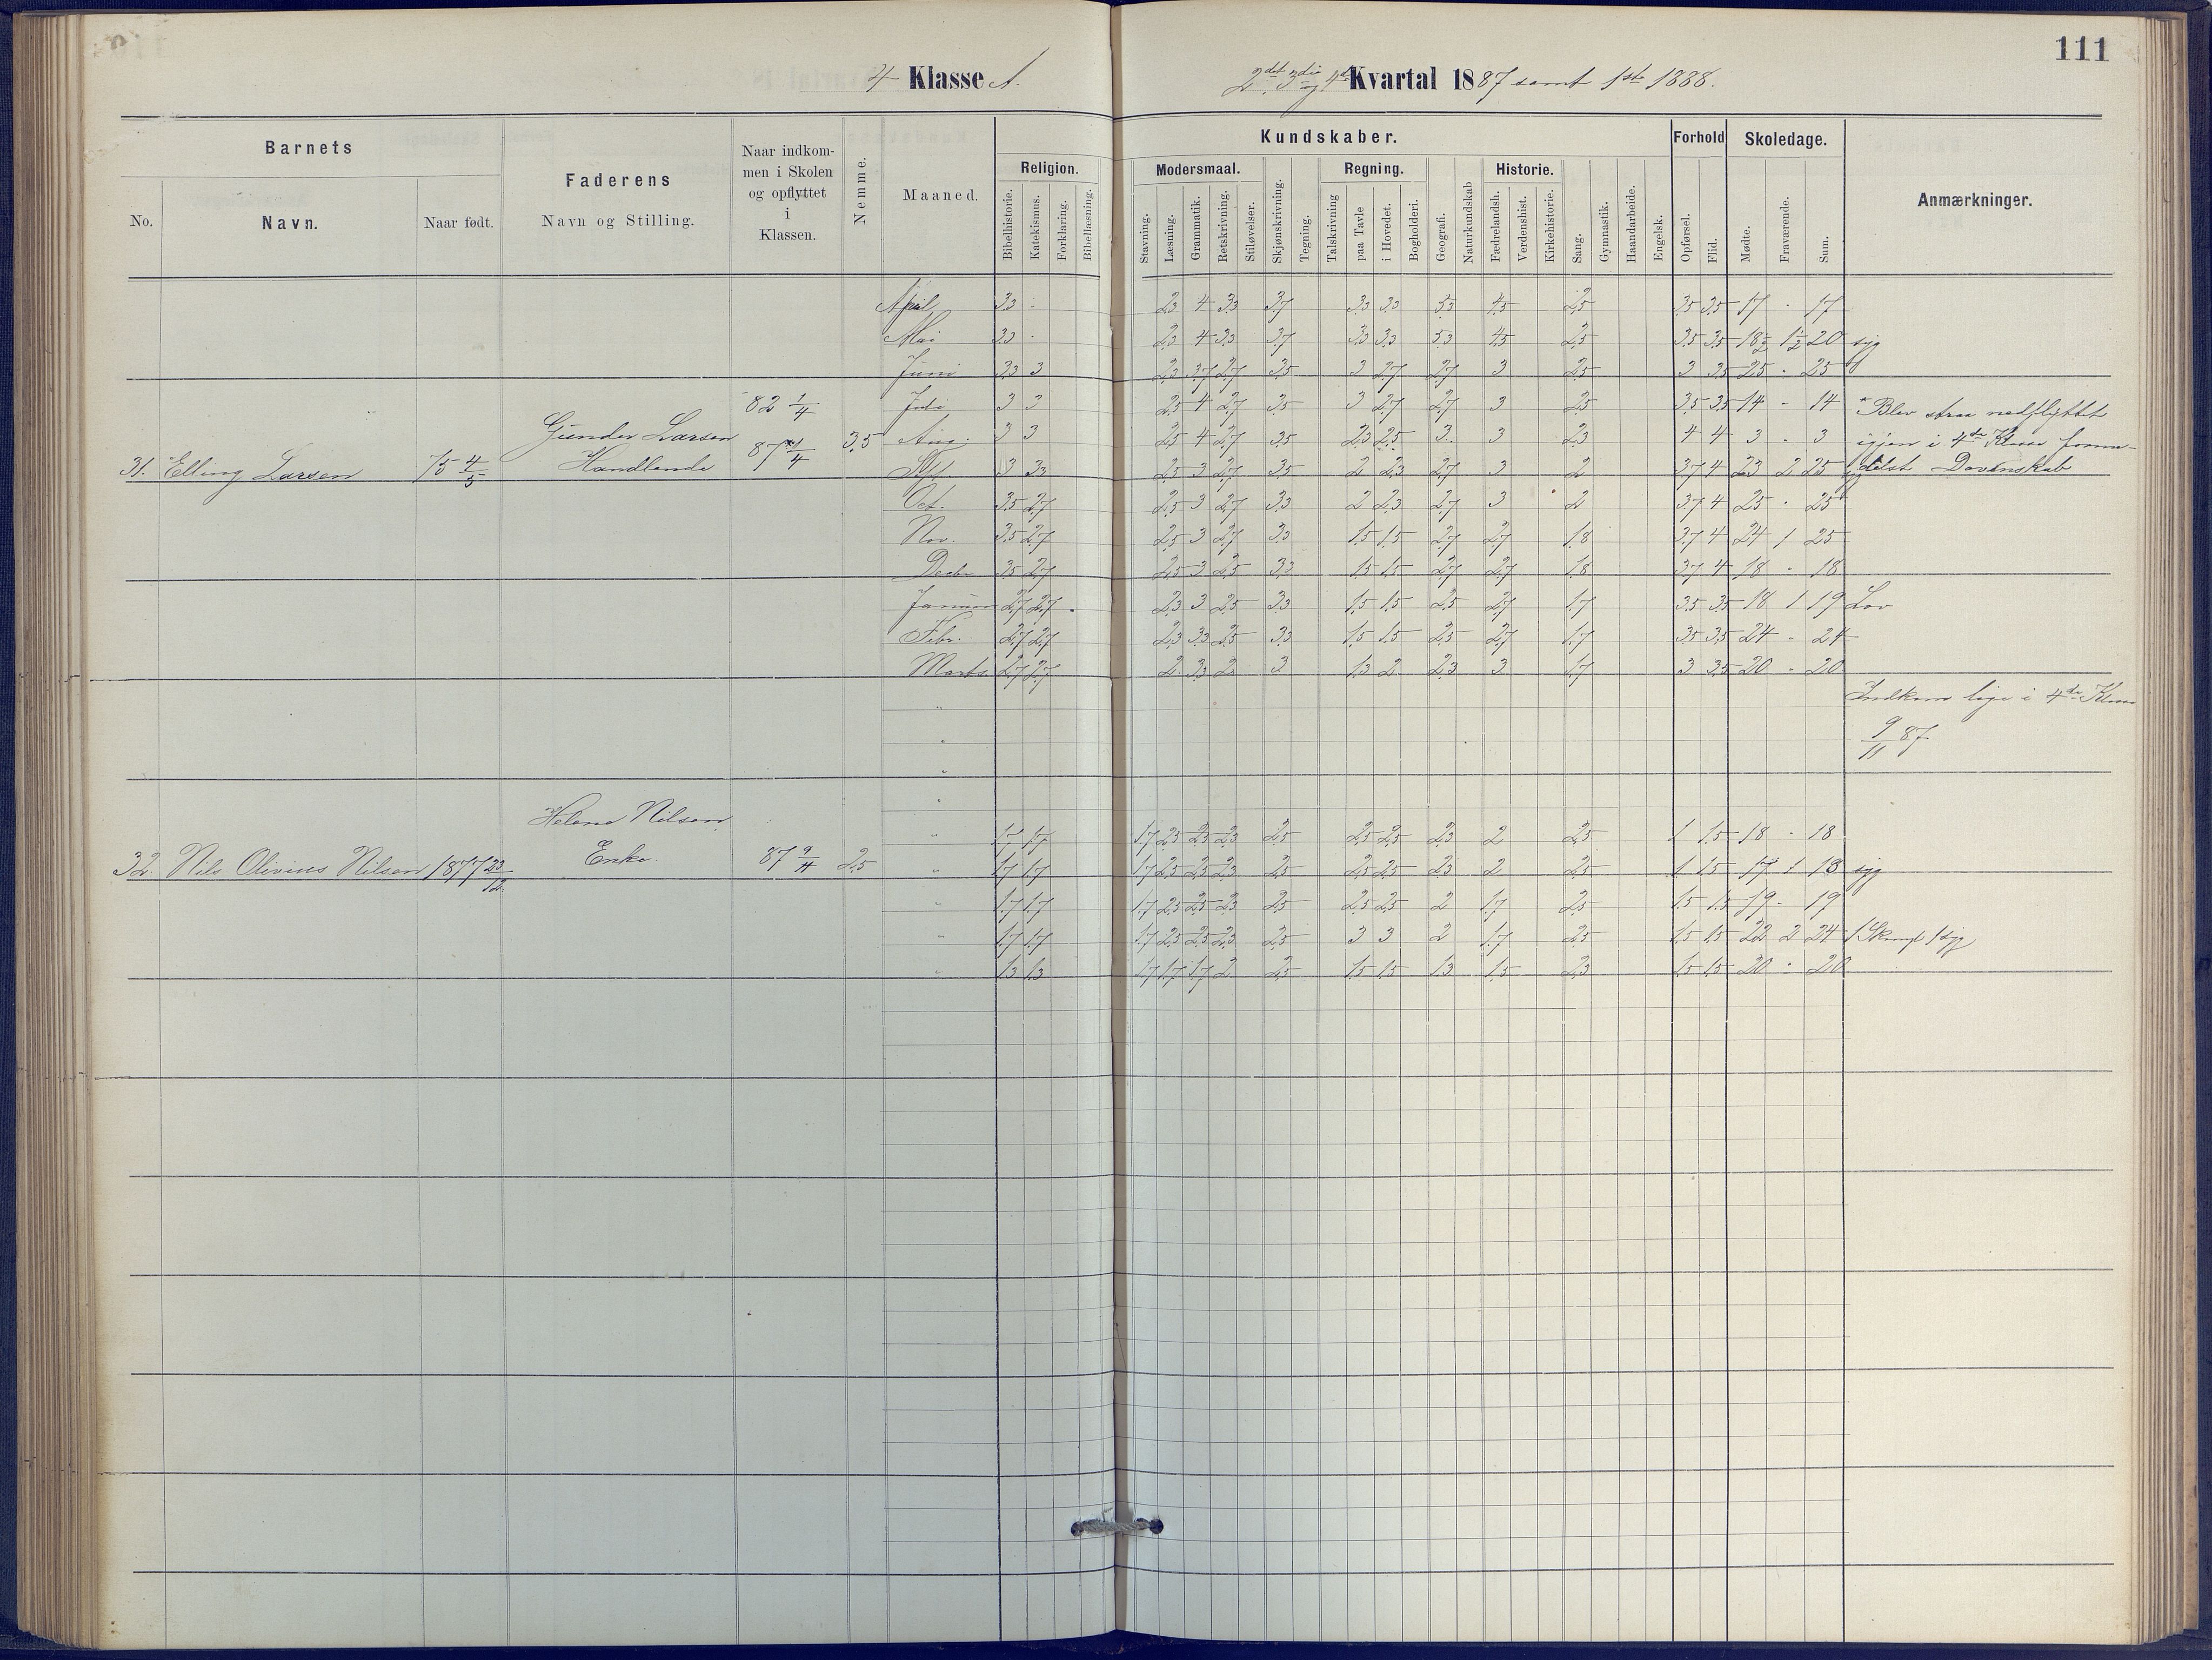 111
4 Klasse A.
2det, 3die og 4de Kvartal 1887 samt 1ste 1888.
Barnets
No.
Navn.
Naar født.
Faderens
Navn og Stilling.
Naar indkom-
men i Skolen
og opflyttet
i
Klassen.
Nemme.
Maaned.
Kundskaber.
Religion.
Bibelhistorie.
Katekismus.
Forklaring.
Bibellæsning.
Modersmaal.
Stavning.
Læsning.
Grammatik.
Retskrivning.
Stiløvelser.
Skjønskrivning.
Tegning.
Regning.
Talskrivning
paa Tavle
i Hovedet.
Bogholderi.
Geografi.
Naturkundskab
Historie.
Fædrelandsh.
Verdenshist.
Kirkehistorie.
Sang.
Gymnastik.
Haandarbeide.
Engelsk.
Forhold
Opførsel.
Flid.
Skoledage.
Mødte.
Fraværende.
Sum.
Anmærkninger.
April 3,3 - 2,3 4 3,3 3,7 3,3 3,3 3,3 4,5 2,5 3,5 3,5 17 - 17
Mai 3,3 - 2,3 4 3,3 3,7 3,3 3,3 3,3 4,5 2,5 3,5 3,5 18½ 1½ 20 syg
Juni 3,3 3 2,3 3,7 2,7 3,5 3 2,7 2,7 3 2,5 3 3,5 25 - 25
82 1/4 Juli 3 3 2,5 4 2,7 3,5 3 2,7 2,7 3 2,5 3,5 3,5 14 - 14 * Blev strax nedflyttet
Gunder Larsen 87 1/4 3,5 Aug. 3 3 2,5 4 2,7 3,5 2,3 2,5 3 3 2,3 4 4 3 - 3 igjen i 4de Klasse forme-
31. Elling Larsen 75 4/5 Handlende Sept. 3 3,3 2,5 3 2,7 3,5 2 2,3 2,7 3 2 3,7 4 23 2 25 delst Dovenskab
Oct. 3,5 2,7 2,5 3 2,7 3,3 2 2,3 2,7 3 2 3,7 4 25 - 25
Nov. 3,5 2,7 2,5 3 2,7 3,3 1,5 1,5 2,7 2,7 1,8 3,7 4 24 1 25
Decbr 3,5 2,7 2,5 3 2,5 3,3 1,5 1,5 2,7 2,7 1,8 3,7 4 18 - 18
Januar 2,7 2,7 2,3 3 2,5 3,3 1,5 1,5 2,5 2,7 1,7 3,5 3,5 18 1 19 Lov
Febr. 2,7 2,7 2,3 3,3 2,5 3,3 1,5 1,5 2,5 2,7 1,7 3,5 3,5 24 - 24
Marts 2,7 2,7 2 3,3 2 3 1,3 2 2,3 3 1,7 3 3,5 20 - 20
Indkom lige i 4de Klasse
9/11 87
Helene Nilsen 1,7 1,7 1,7 2,5 2,5 2,3 2,5 2,5 2,5 2,3 2 2,5 1 1,5 18 - 18
32. Nils Olivius Nilsen 1877 23/12 Enke. 87 9/11 2,5 1,7 1,7 1,7 2,5 2,5 2,3 2,5 2,5 2,5 2,3 2 2,5 1 1,5 17 1 18 syg
1,7 1,7 1,7 2,5 2,5 2,3 2,5 2,5 2,5 2 1,7 2,5 1,5 1,5 19 - 19
1,7 1,7 1,7 2,5 2,5 2,3 2,5 3 3 2 1,7 2,5 1,5 1,5 22 2 24 1 syg
1,3 1,3 1,7 1,7 1,7 2 2,5 1,5 1,5 1,3 1,5 2,3 1,5 1,5 20 - 20